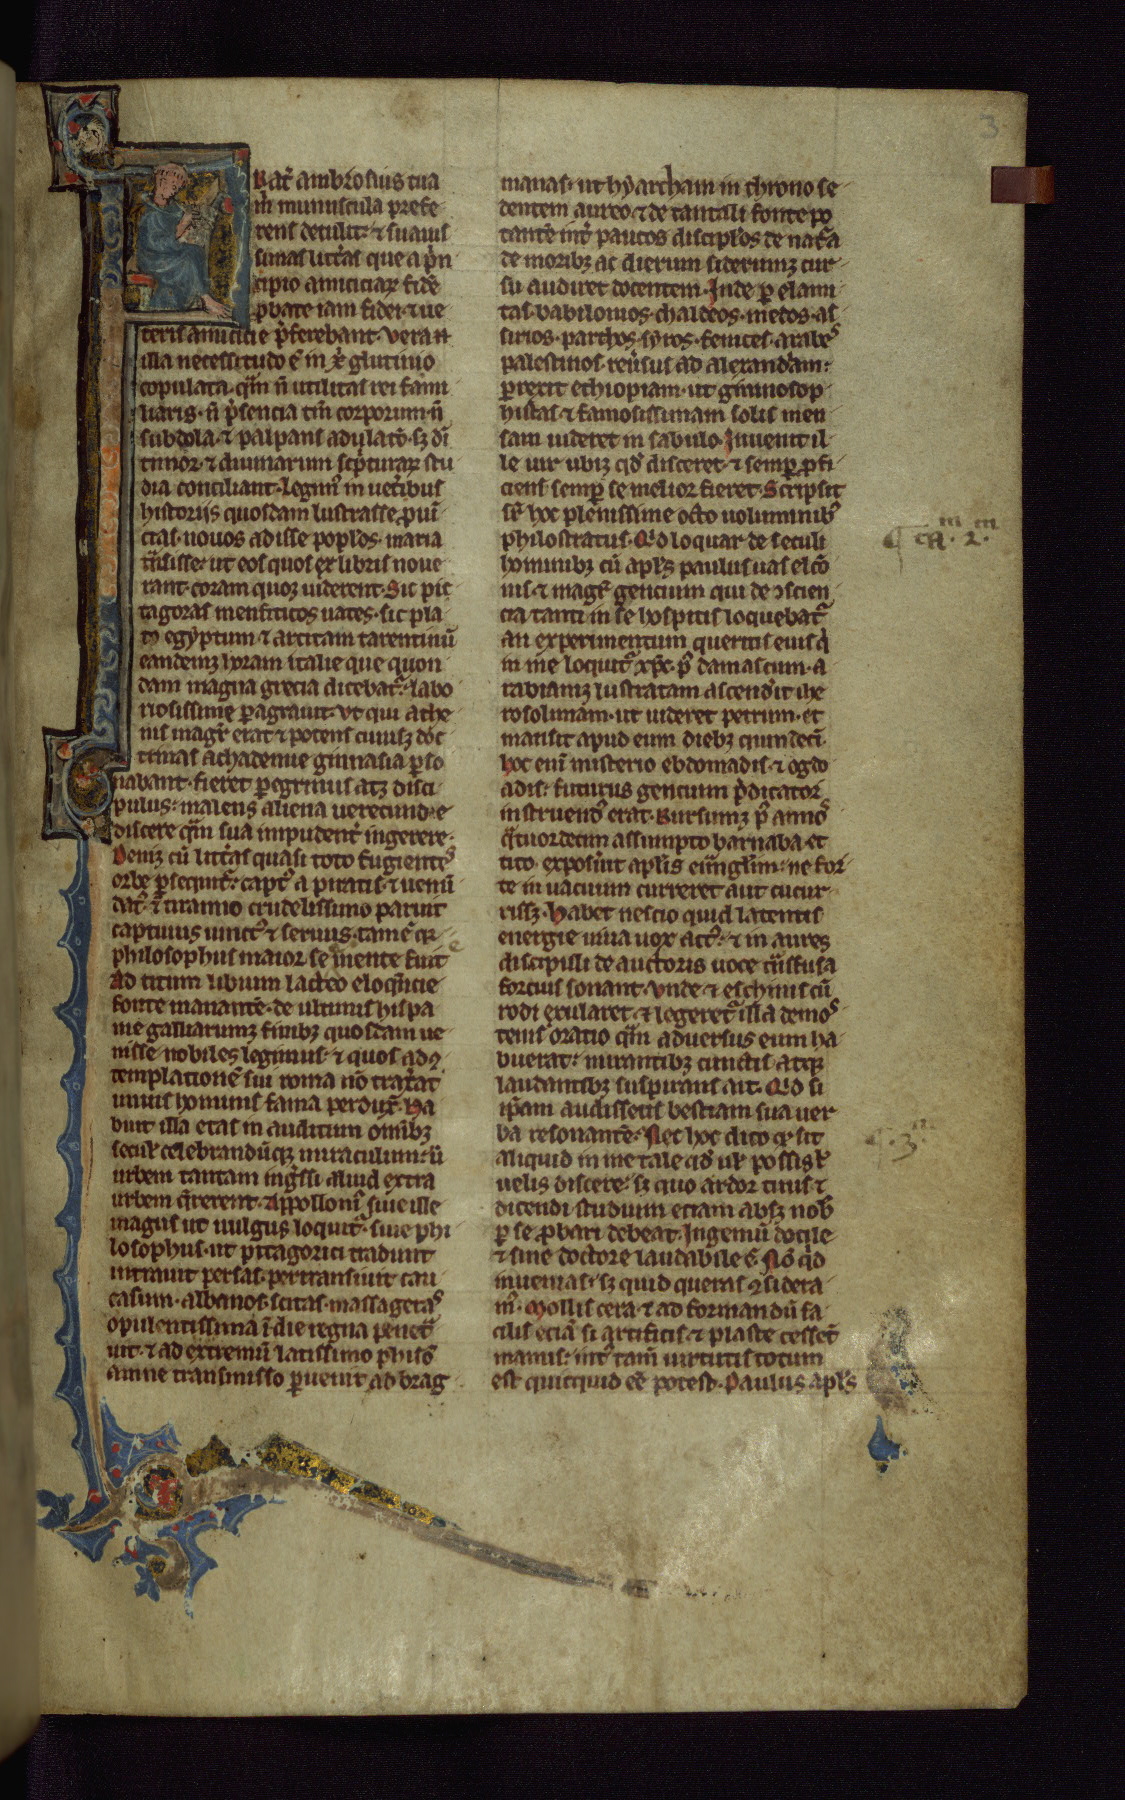 3
Rat̃ ambrosius tua
m̃ munuscula prefe
rens detulit: ⁊ suauis
simas litt̾as que a p̾n
cipio amiciciaꝝ fidē
ꝓbate iam fidei ⁊ ue
teris amicicie p̾ferebant. Vera n̄
illa necessitudo ē ⁊ in xp̄i glutino
copulata. qm̄ n̄ utilitas rei fami
liaris. n̄ p̾sencia tm̄ corporum. n̄
subdola ⁊ palpans adulato. sꝫ di
timor. ⁊ diuinarum scp̾turaꝝ stu
dia conciliant. Legim᾽ in uet̾ibus
historijs quosdam lustrasse ꝓuin̄
cias. nouos adisse popl̾os. maria
t̾nsisse: ut eos quos ex libris noue
rant. coram quoqꝫ uiderent. Sic pic
tagoras menfiticos uates. sic pla
to egyptum ⁊ arcitam tarentinū
eandemqꝫ horam italie que quon
dam magna grecia dicebat᷑: labo
riosissime ꝑagrauit. Vt qui athe
nis magr̄ erat ⁊ potens cuiusqꝫ doc
trinas achademie gimnasia ꝑso
nabant. fieret ꝑegrinus atqꝫ disci
pulus: malens aliena uerecunde
discere qm̄ sua impudent̾ ingerere.
Deniqꝫ cū litt̾as quasi toto fugient᾽
orbe ꝑsequit᷑: capt᾽ a piratis ⁊ uenū
dat᾽. ⁊ tiranno crudelissimo paruit
captiuus uinct᾽ ⁊ seruus. tamē qꝛ
philosophus maior se emente fuit
Ad titum liuium lacteo eloq̄ncie
fonte manantē. de ultimis hispa
nie galliarumqꝫ finibꝫ quosdam ue
nisse nobiles legimus. ⁊ quos ad ꝯ
templationē sui roma nō trax̾at
unius hominis fama perdux̾. Ha
buit illa etas in auditum omībꝫ
secul̾ celebrandūqꝫ miraculum: ū
urbem tantam ing̾ssi aliud extra
urbem q̄rerent. Appolloni᾽ siue ille
magus ut uulgus loquit᷑. siue phi
losophus. ut pitagorici tradunt
intrauit persas. pertransiuit cau
casum. albanos. scitas. massageta᾽
opulentissima īdie regna penet̾
uit. ⁊ ad extremū latissimo phiso᾽
amne transmisso ꝑuenit ad brag
manas. ut hyarcham in throno se
dentem aureo. ⁊ de tantali fonte po
tantē int̾ paucos discipl̾os de nat᷑a
de moribꝫ ac dierum siderumqꝫ cur
su audiret docentem. Inde ꝑ elami
tas. babilonios. chaldeos. medos. as
sirios. parthos. syros. fenices. arabe᾽
palestinos. reu̾sus ad alexandr̾am:
ꝑrexit ethiopiam. ut gimnosop
histas ⁊ famosissimam solis men
sam uideret in sabulo. Inuenit il
le uir ubiqꝫ qd̾ disceret. ⁊ semꝑ ꝓfi
ciens semꝑ se melior fieret. Scripsit
sr̄ hoc plenissime octo uoluminib᾽
philostratus. Qd̾ loquar de seculi
hominibꝫ cū apl̾s paulus uas elco
nis. ⁊ magr̄ gencium qui de ꝯscien
cia tanti in se hospitis loquebat᷑
an experimentum queritis eius q̾
in me loquit᷑ xp̄c. p᾽ damascum. a
rabiamqꝫ lustratam ascend̾it ihe
rosolimam. ut uideret petrum. et
mansit apud eum diebꝫ quindeci̅.
hoc eni̅ misterio ebdomadis. ⁊ ogdo
adis: futurus gencium p̾dicator
instruend᾽ erat. Rursumqꝫ p᾽ anno᾽
q̾tuordecim assumpto barnaba et
tito. exposuit apl̾is eūngl̾im: ne for
te in uacuum curreret aut cucur
rissꝫ. Habet nescio quid latentis
energie uiua uox act᾽: ⁊ in aures
discipuli de auctoris uoce t̾nsfusa
forcius sonant. Vnde ⁊ eschinis cū
rodi exularet. ⁊ legeret᷑ illa demos᾽
tenis oratio qm̄ aduersus eum ha
buerat: mirantibꝫ cunctis atqꝫ
laudantibꝫ suspirans ait. Qd̾ si
ip̄am audissetis bestiam sua uer
ba resonantē: Nec hoc dico qꝛ sit
aliquid in me tale qd̾ ul̾ possis ul̾
uelis discere: sꝫ quo ardor tuus ⁊
dicendi studium eciam absqꝫ nob᾽
ꝑ se ꝓbari debeat. Ingeniū docile
⁊ sine doctore laudabile ē. Nō q̾d
inuenias: sꝫ quid queras ꝯsidera
m᾽. Mollis cera. ⁊ ad formandū fa
cilis eciā si artificis ⁊ plaste cesset̄
manus: int̾ tam̄ uirtutis totum
est quicquid eē potest. Paulus apl̾s